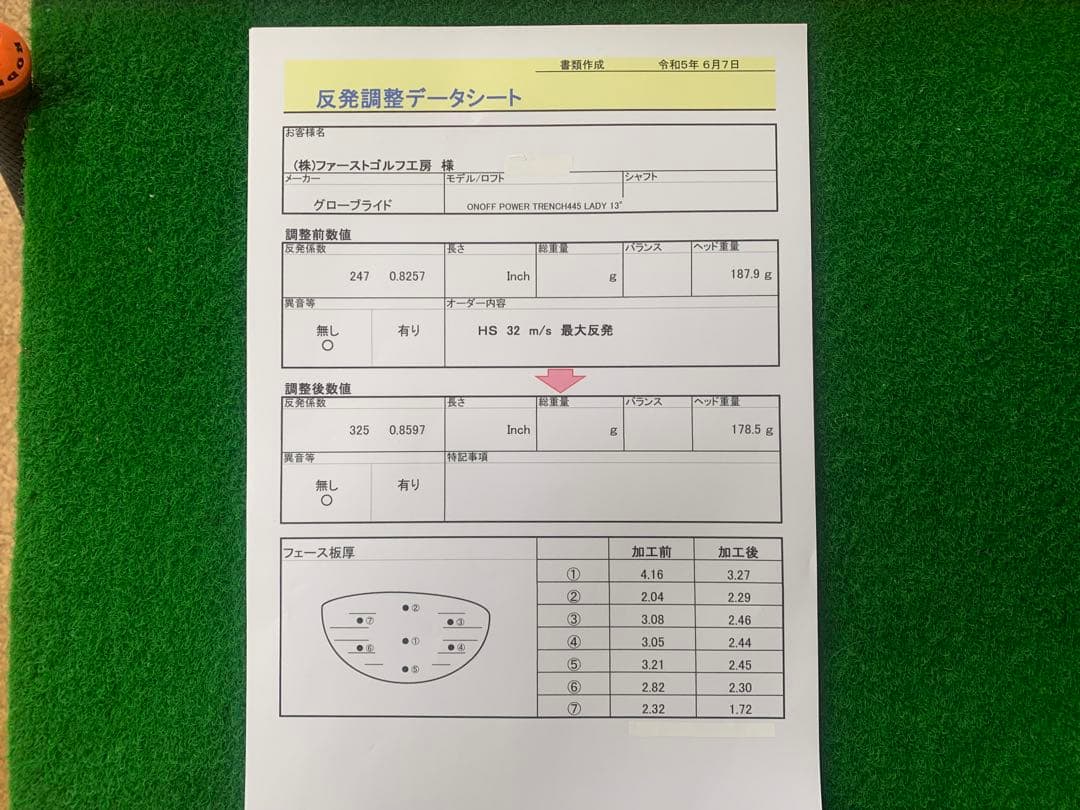 書類作成 令和5年 6月7日
反発調整データシート
お客様名
(株)ファーストゴルフ工房 様
メーカー モデル/ロフト シャフト
グローブライド ONOFF POWER TRENCH445 LADY 13°
調整前数値
反発係数 長さ 総重量 バランス ヘッド重量
247 0.8257 Inch g 187.9 g
異音等 オーダー内容
無し 有り HS 32 m/s 最大反発
○
調整後数値
反発係数 長さ 総重量 バランス ヘッド重量
325 0.8597 Inch g 178.5 g
異音等 特記事項
無し 有り
○
フェース板厚 加工前 加工後
① 4.16 3.27
② 2.04 2.29
③ 3.08 2.46
④ 3.05 2.44
⑤ 3.21 2.45
⑥ 2.82 2.30
⑦ 2.32 1.72
②
⑦ ③
①
⑥ ④
⑤